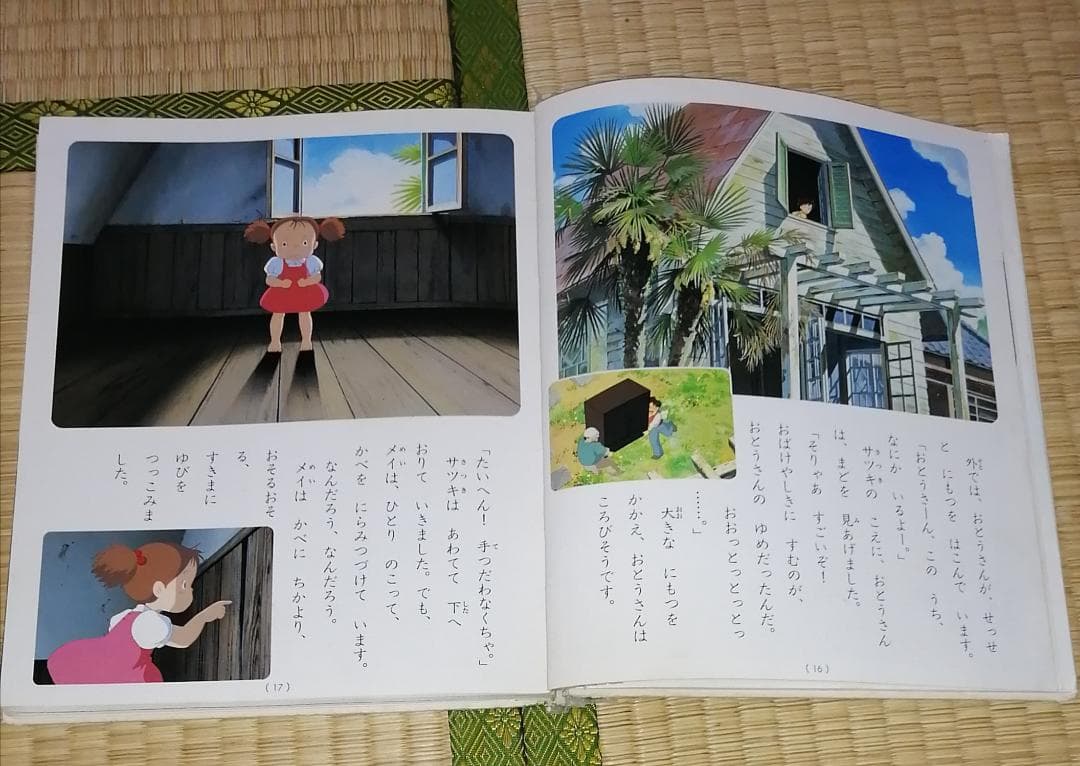 外では、おとうさんが、せっせ
と にもつを はこんで います。
「おとうさーん、この うち、
なにか いるよー。」
サツキの こえに、おとうさん
は、まどを 見あげました。
「そりゃあ すごいぞ！
おばけやしきに すむのが、
おとうさんの ゆめだったんだ。
おおっとっとっとっ
……。」
大きな にもつを
かかえ、おとうさんは
ころびそうです。
(16)
「たいへん！ 手つだわなくちゃ。」
サツキは あわてて 下へ
おりて いきました。でも、
メイは、ひとり のこって、
かべを にらみつづけて います。
なんだろう、なんだろう。
メイは かべに ちかより、
おそるおそ
る、
すきまに
ゆびを
つっこみま
した。
(17)